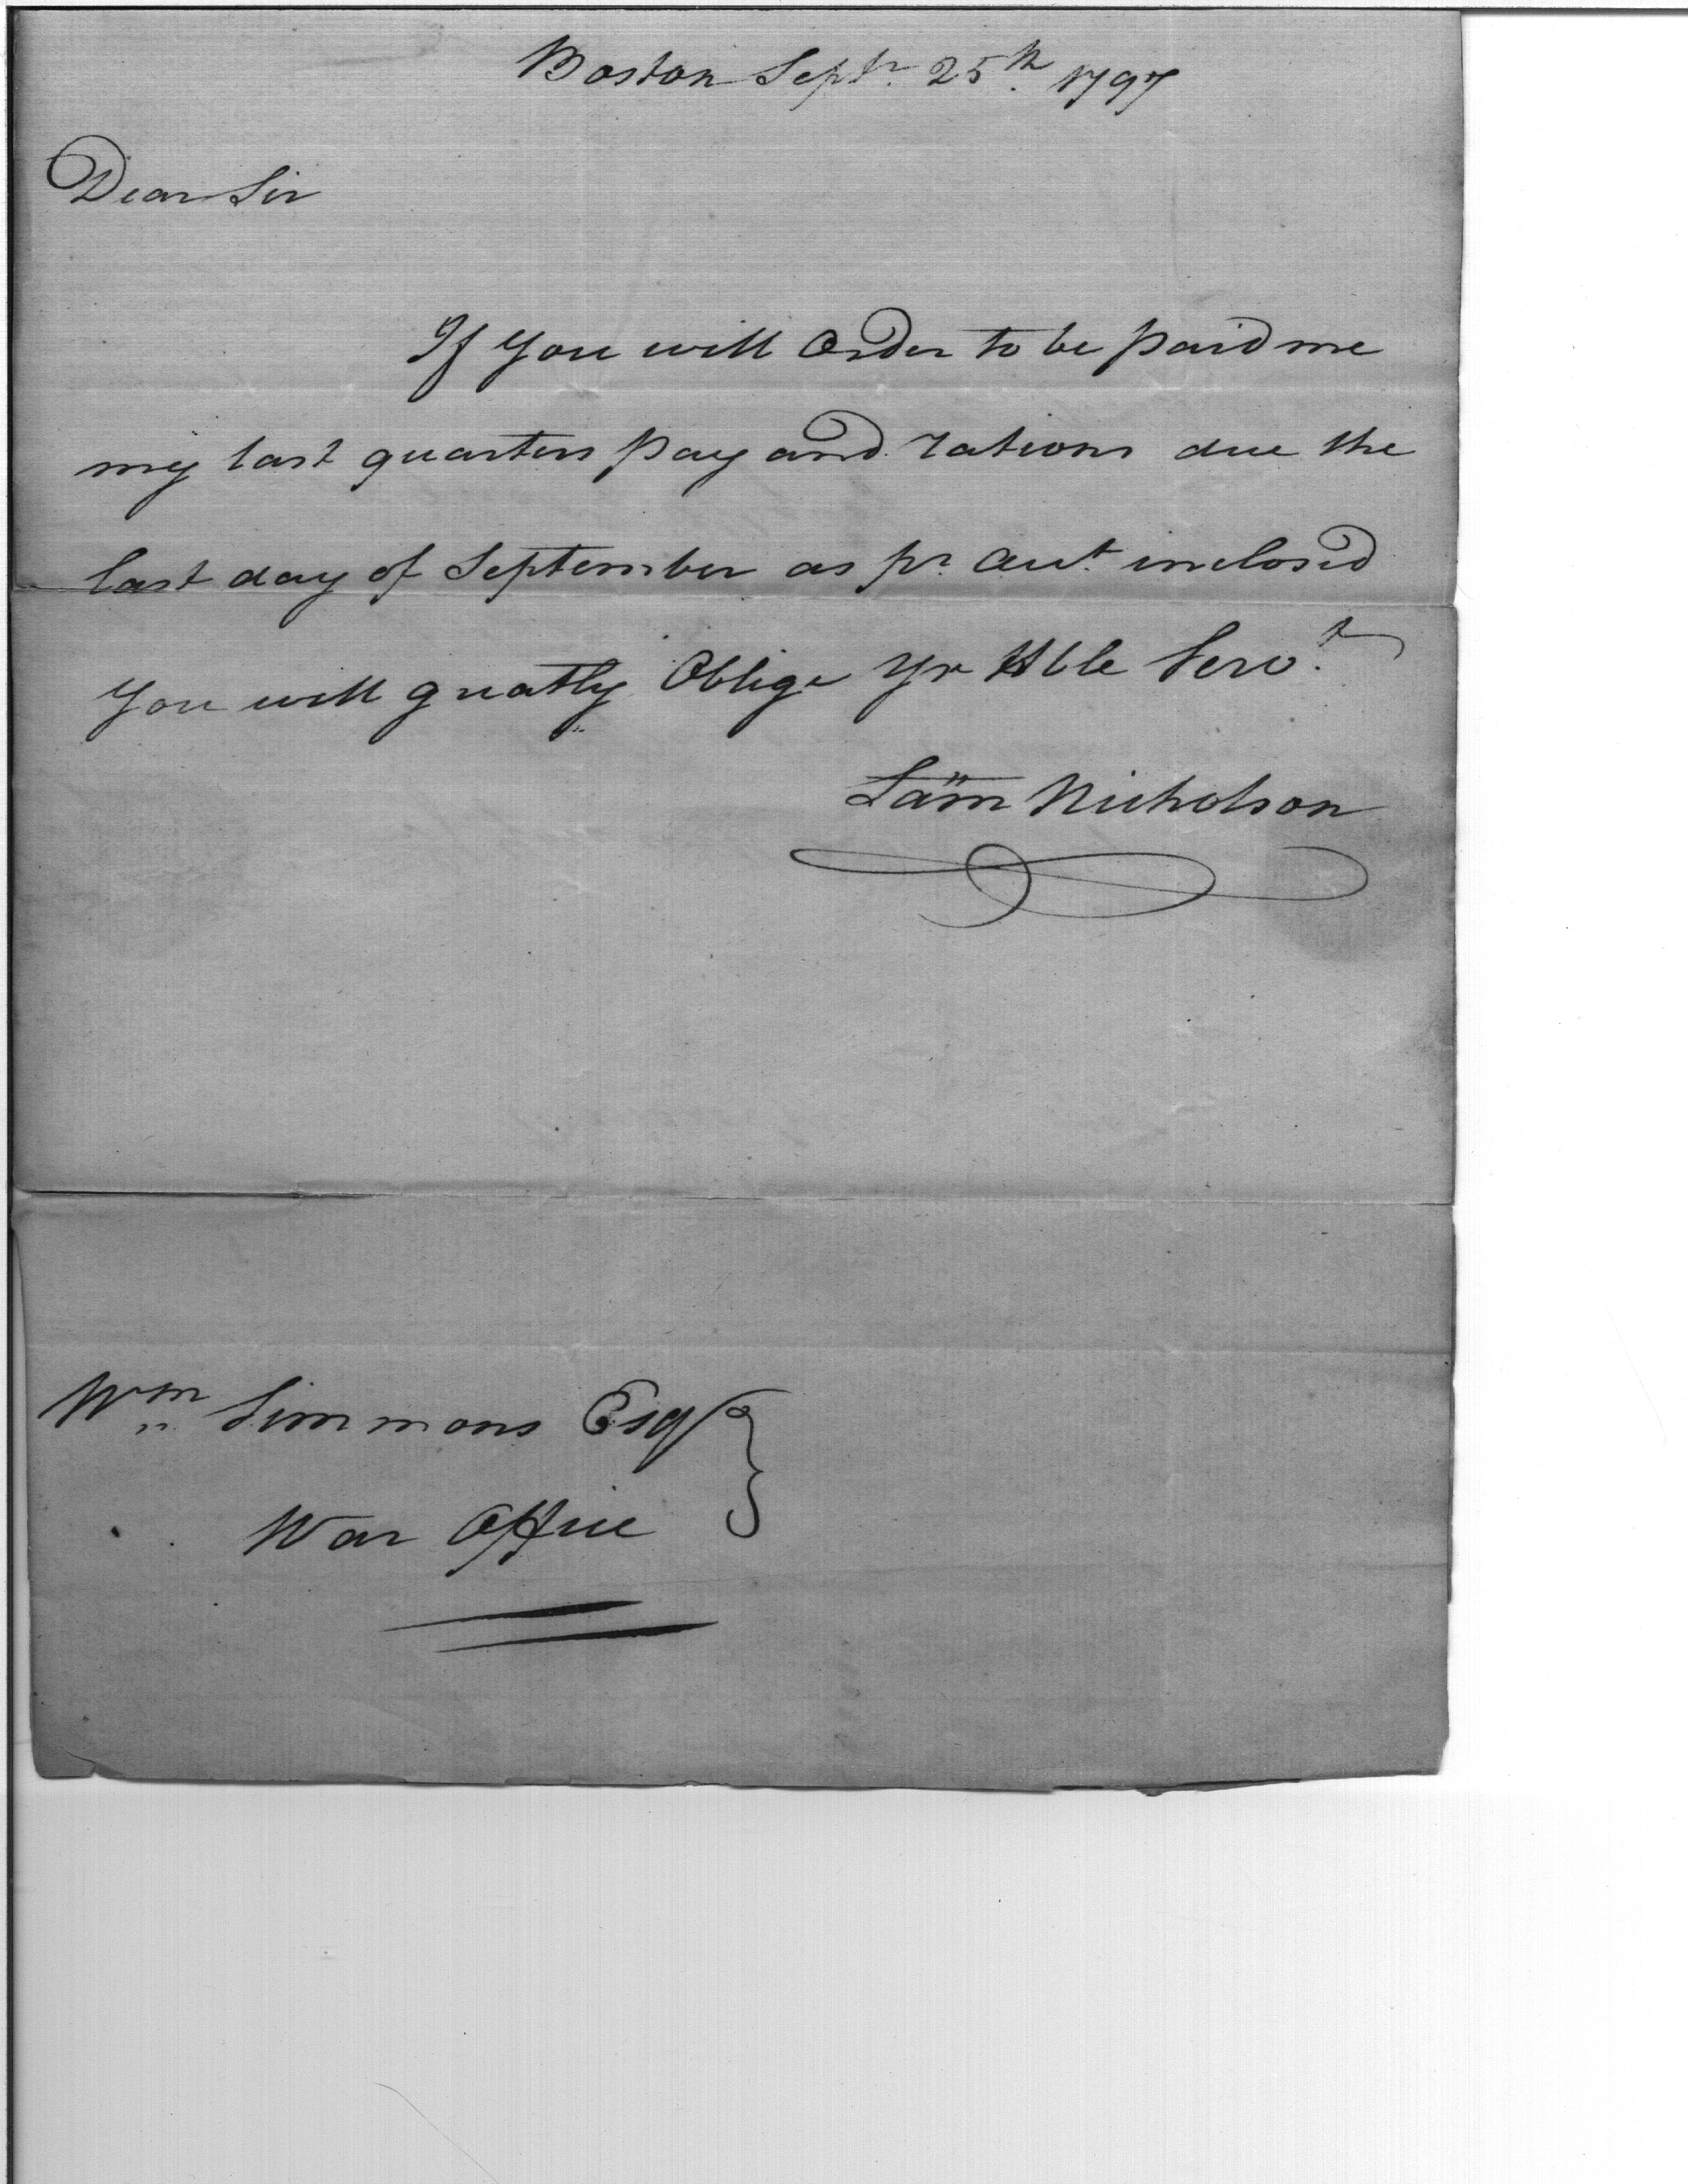 Boston Septr. 25th. 1797
Dear Sir
If You will Order to be paid me
my last quarters pay and rations due the
last day of September as pr. Acct. inclosed
You will greatly Oblige Yr Hble Servt.
Sam Nicholson
Wm Simmons Esqr
War Office